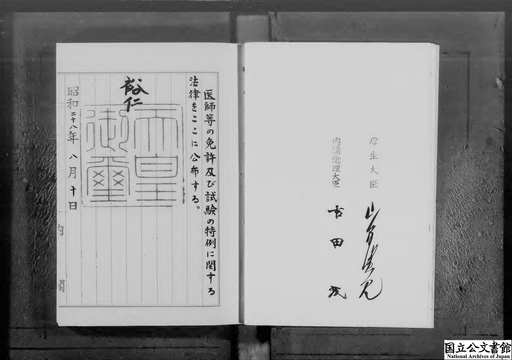 医師等の免許及び試験の特例に関する
法律をここに公布する。
裕仁
天皇
御璽
昭和二十八年八月十日
内閣
厚生大臣
山縣勝見
内閣総理大臣
吉田茂
国立公文書館
National Archives of Japan